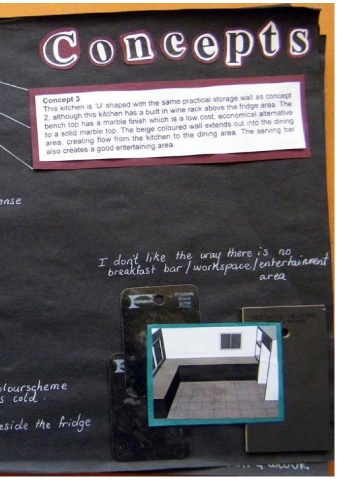 Concepts
Concept 3
This kitchen is 'U' shaped with the same practical storage wall as concept
2, although this kitchen has a built in wine rack above the fridge area. The
bench top has a marble finish which is a low cost, economical alternative
to a solid marble top. The beige coloured wall extends out into the dining
area, creating flow from the kitchen to the dining area. The serving bar
also creates a good entertaining area.
ense
I don't like the way there is no
breakfast bar/workspace/entertainment
area
olourscheme
s cold.
eside the fridge